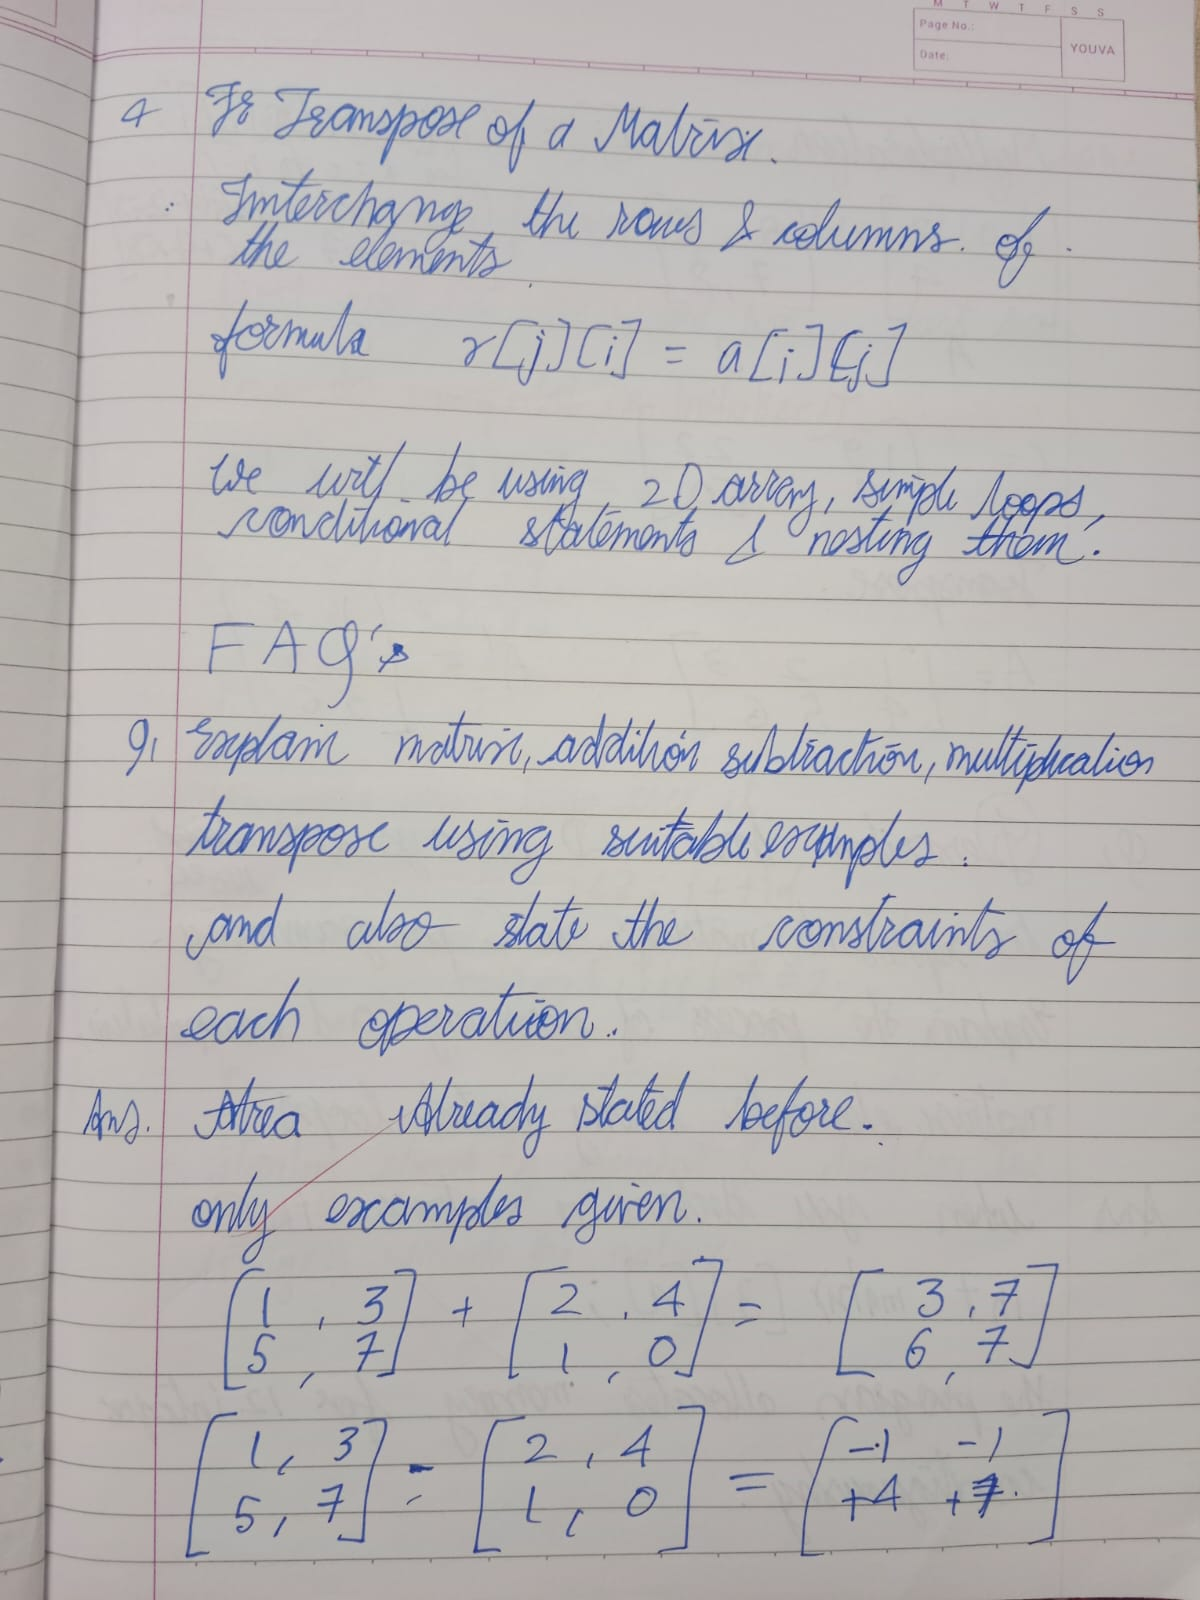 M T W T F S S
Page No.:
YOUVA
Date:
4 Transpose of a Matrix.
: Interchange the rows & columns. of
the elements.
formula r[j][i] = a[i][j]
We will be using 2D array, simple loops,
conditional statements & nesting them.
FAQ's
Q1 Explain matrix, addition subtraction, multiplication
transpose using suitable examples.
and also state the constraints of
each operation.
Ans. Already stated before.
only examples given.
[1, 3] + [2, 4] = [3, 7]
[5, 7] [1, 0] [6, 7]
[1, 3] - [2, 4] = [-1 -1]
[5, 7] [1, 0] [+4 +7]